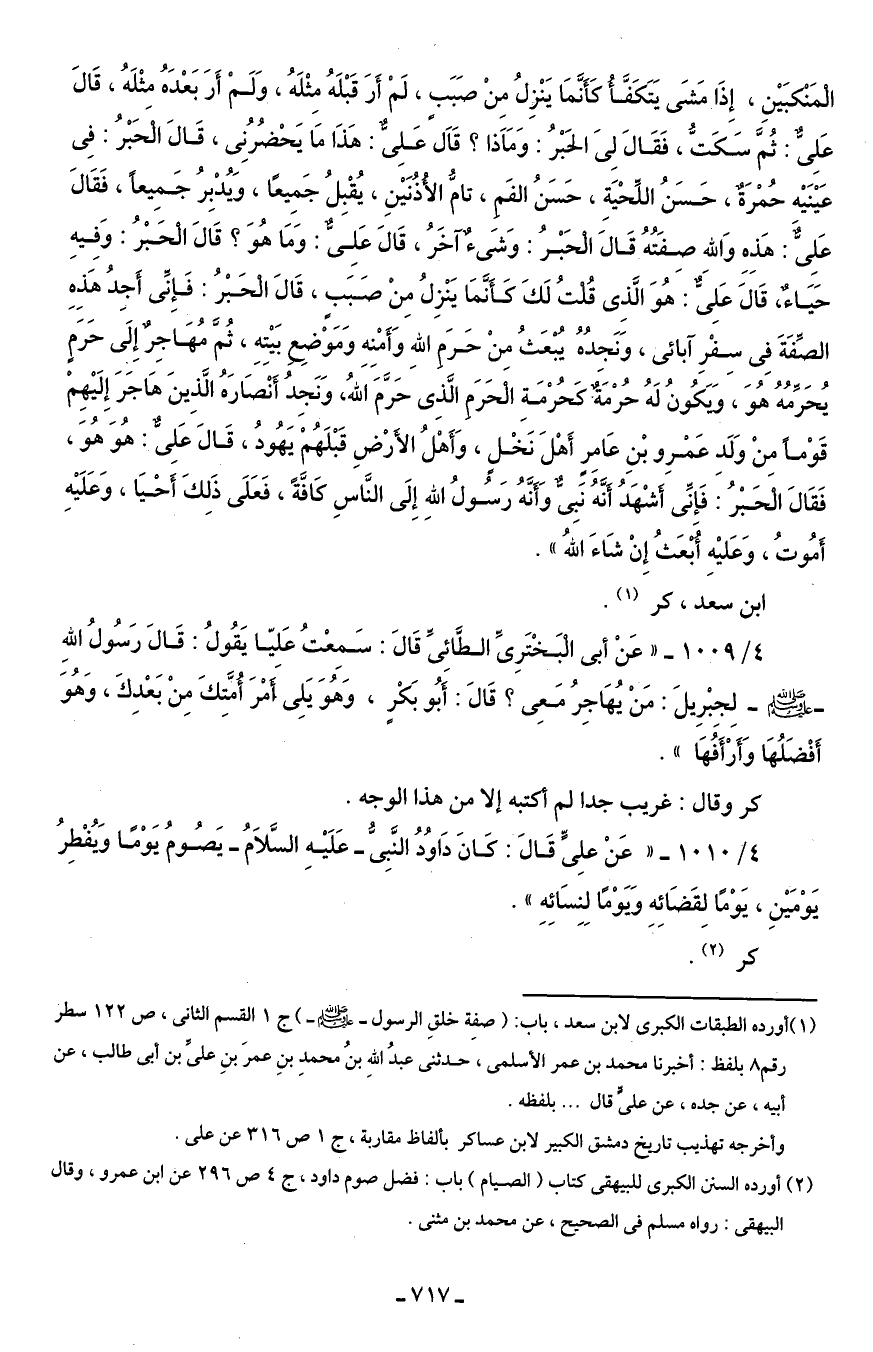 الْمَنْكبَيْنِ ، إِذَا مَشَى يَتَكَفَّأُ كَأَنَّمَا يَنْزِلُ مِنْ صَبَبٍ ، لَمْ أَرَ قَبْلَهُ مِثْلَهُ ، وَلَمْ أَرَ بَعْدَهُ مِثْلَهُ ، قَالَ
عَلِىٌّ : ثُمَّ سَكَتُّ ، فَقَالَ لِىَ الحَبْرُ : وَمَاذَا ؟ قَالَ عَلِىٌّ : هَذَا مَا يَحْضُرُنِى ، قَالَ الْحَبْرُ : فِى
عَيْنَيْهِ حُمْرَةٌ ، حَسَنُ اللِّحْيَةِ ، حَسَنُ الفَمِ ، تَامُّ الأُذُنَيْنِ ، يُقْبِلُ جَمِيعًا ، وَيُدْبِرُ جَمِيعاً ، فَقَالَ
عَلِىٌّ : هَذِهِ وَالله صِفَتُهُ قَالَ الْحَبْرُ : وَشَىءٌ آخَرُ ، قَالَ عَلِىٌّ : وَمَا هُوَ ؟ قَالَ الْحَبْرُ : وَفِيهِ
حَيَاءٌ، قَالَ عَلِىٌّ : هُوَ الَّذِى قُلْتُ لَكَ كَأَنَّمَا يَنْزِلُ مِنْ صَبَبٍ ، قَالَ الْحَبْرُ : فَإِنِّى أَجِدُ هَذِهِ
الصِّفَةَ فِى سِفْرِ آبَائِى ، وَنَجِدُهُ يُبْعَثُ مِنْ حَرَمِ اللهِ وَأَمْنِهِ وَمَوْضِعِ بَيْتِهِ ، ثُمَّ مُهَاجِرٌ إِلَى حَرَمٍ
يُحَرِّمُهُ هُوَ ، وَيَكُونُ لَهُ حُرْمَةٌ كَحُرْمَةِ الْحَرَمِ الَّذِى حَرَّمَ اللهُ، وَنَجِدُ أَنْصَارَهُ الَّذِينَ هَاجَرَ إِلَيْهِمْ
قَوْمًا مِنْ وَلَدِ عَمْرِو بْنِ عَامِرٍ أَهْلَ نَخْلٍ ، وَأَهْلُ الأَرْضِ قَبْلَهُمْ يَهُودُ ، قَالَ عَلِىٌّ : هُوَ هُوَ ،
فَقَالَ الْحَبْرُ : فَإِنِّى أَشْهَدُ أَنَّهُ نَبِىٌّ وَأَنَّهُ رَسُولُ اللهِ إِلَى النَّاسِ كَافَّةً ، فَعَلَى ذَلِكَ أَحْيَا ، وَعَلَيْهِ
أَمُوتُ ، وَعَلَيْهِ أُبْعَثُ إِنْ شَاءَ اللهُ » .
ابن سعد ، كر (١) .
٤/ ١٠٠٩ ـ « عَنْ أَبِى الْبَخْتَرِىِّ الطَّائِىِّ قَالَ : سَمِعْتُ عَلِيّا يَقُولُ : قَالَ رَسُولُ الله
ـ ﷺ ـ لِجِبْرِيلَ : مَنْ يُهَاجِرُ مَعِى ؟ قَالَ : أَبُو بَكْرٍ ، وَهُوَ يَلِى أَمْرَ أُمَّتِكَ مِنْ بَعْدِكَ ، وَهُوَ
أَفْضَلُهَا وَأَرْأَفُهَا » .
كر وقال : غريب جدا لم أكتبه إلا من هذا الوجه .
٤/ ١٠١٠ ـ « عَنْ عَلِىٍّ قَالَ : كَانَ دَاوُدُ النَّبِىُّ ـ عَلَيْهِ السَّلاَمُ ـ يَصُومُ يَوْمًا وَيُفْطِرُ
يَوْمَيْنِ ، يَوْمًا لِقَضَائِهِ وَيَوْمًا لِنِسَائِهِ » .
كر (٢) .
(١) أورده الطبقات الكبرى لابن سعد ، باب: ( صفة خلق الرسول ـ ﷺ ـ ) ج ١ القسم الثانى ، ص ١٢٢ سطر
رقم٨ بلفظ : أخبرنا محمد بن عمر الأسلمى ، حدثنى عبدُ الله بنُ محمدِ بنِ عمرَ بنِ علىِّ بن أبى طالب ، عن
أبيه ، عن جده ، عن علىٍّ قال ... بلفظه .
وأخرجه تهذيب تاريخ دمشق الكبير لابن عساكر بألفاظ مقاربة ، ج ١ ص ٣١٦ عن على .
(٢) أورده السنن الكبرى للبيهقى كتاب ( الصيام ) باب : فضل صوم داود ، ج ٤ ص ٢٩٦ عن ابن عمرو ، وقال
البيهقى : رواه مسلم فى الصحيح ، عن محمد بن مثنى .
ـ ٧١٧ ـ